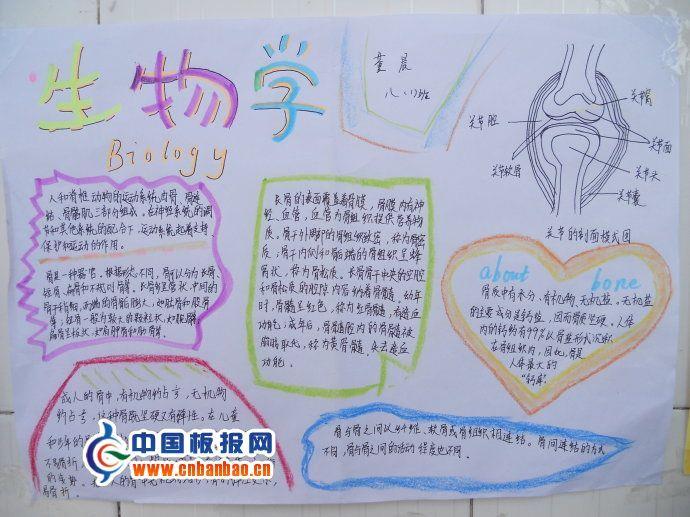 生物学
Biology
童晨
八、(1)班
关节窝
关节腔
关节面
关节软骨
关节头
关节囊
关节的剖面模式图
人和脊椎动物的运动系统由骨、骨连
结、骨骼肌三部分组成。在神经系统的调
节和其他系统的配合下，运动系统起着支持
保护和运动的作用。
骨是一种器官。根据形态不同，骨可以分为长骨、
短骨、扁骨和不规则骨等。长骨呈管状，中间的
骨干稍细，两端的骨骺膨大，如肱骨和股骨
等；短骨一般为较大的颗粒状，如腕骨；
扁骨呈板状，如
长骨的表面覆盖着骨膜，骨膜内有神
经、血管，血管为骨组织提供营养物
质。骨干外围的骨组织致密，称为骨密
质；骨干内侧和骨骺端的骨组织呈蜂
窝状，称为骨松质。长骨骨干中央的空腔
和骨松质的腔隙内容纳着骨髓。幼年
时，骨髓呈红色，称为红骨髓，有造血
功能；成年后，骨髓腔内的骨髓被
脂肪取代，称为黄骨髓，失去造血
功能。
about bone
骨质中有水分、有机物、无机盐。无机盐
的主要成分是钙盐，因而质坚硬。人体
内的钙约有99%以骨盐形式沉积
在骨组织内，因此，骨是
人体最大的
“钙库”
成人的骨中，有机物约占⅓，无机物
约占⅔，这种骨既坚硬又有弹性。在儿童
和少年的
不易骨折
的姿势。
易骨折。
骨与骨之间以纤维、软骨或骨组织相连结。骨间连结的方式
不同，骨与骨之间的活动程度也不同。
中国板报网
www.cnbanbao.cn